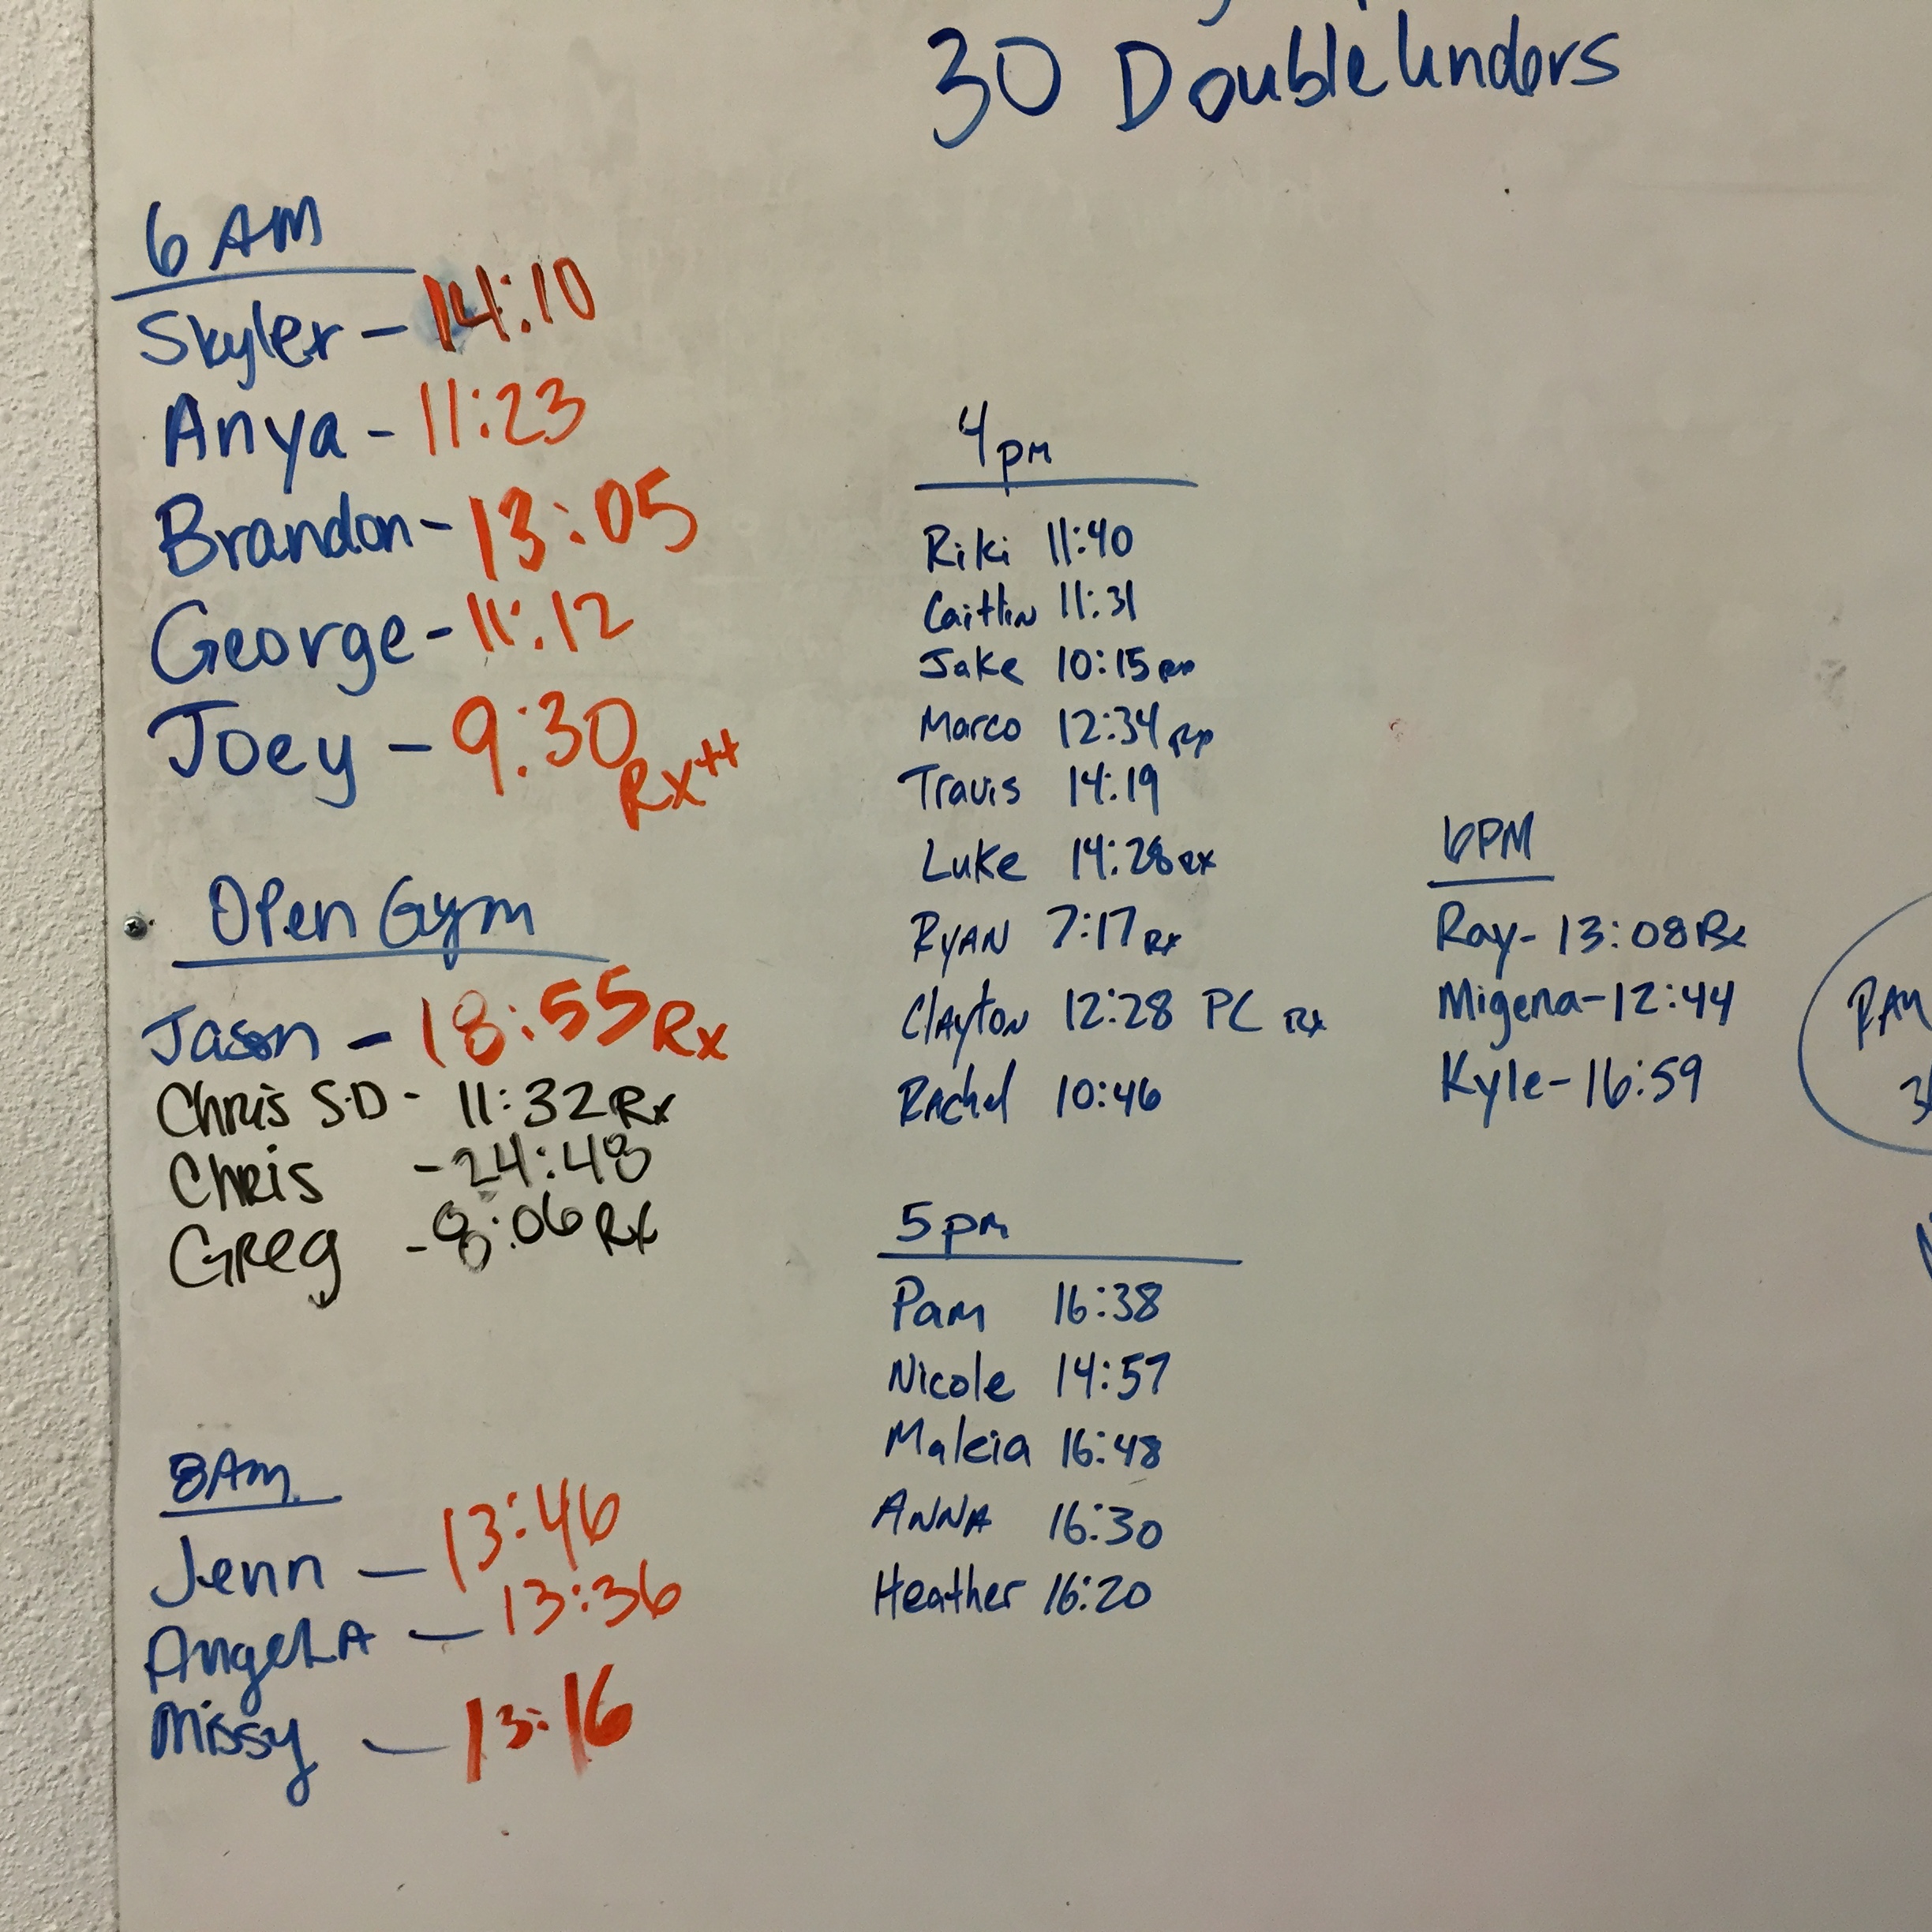 30 Double Unders
6 AM
Skyler - 14:10
Anya - 11:23
Brandon - 13:05
George - 11:12
Joey - 9:30
Rx++
Open Gym
Jason - 18:55 Rx
Chris S.D - 11:32 Rx
Chris - 24:48
Greg - 8:06 Rx
8AM
Jenn - 13:46
AngeLA - 13:36
Missy - 13:16
4pm
Riki 11:40
Caitlin 11:31
Jake 10:15
Marco 12:34
Travis 14:19
Luke 14:28 RX
RYAN 7:17 Rx
Clayton 12:28 PC Rx
Rachel 10:46
5pm
Pam 16:38
Nicole 14:57
Maleia 16:48
ANNA 16:30
Heather 16:20
6PM
Ray - 13:08 Rx
Migena - 12:44
Kyle - 16:59